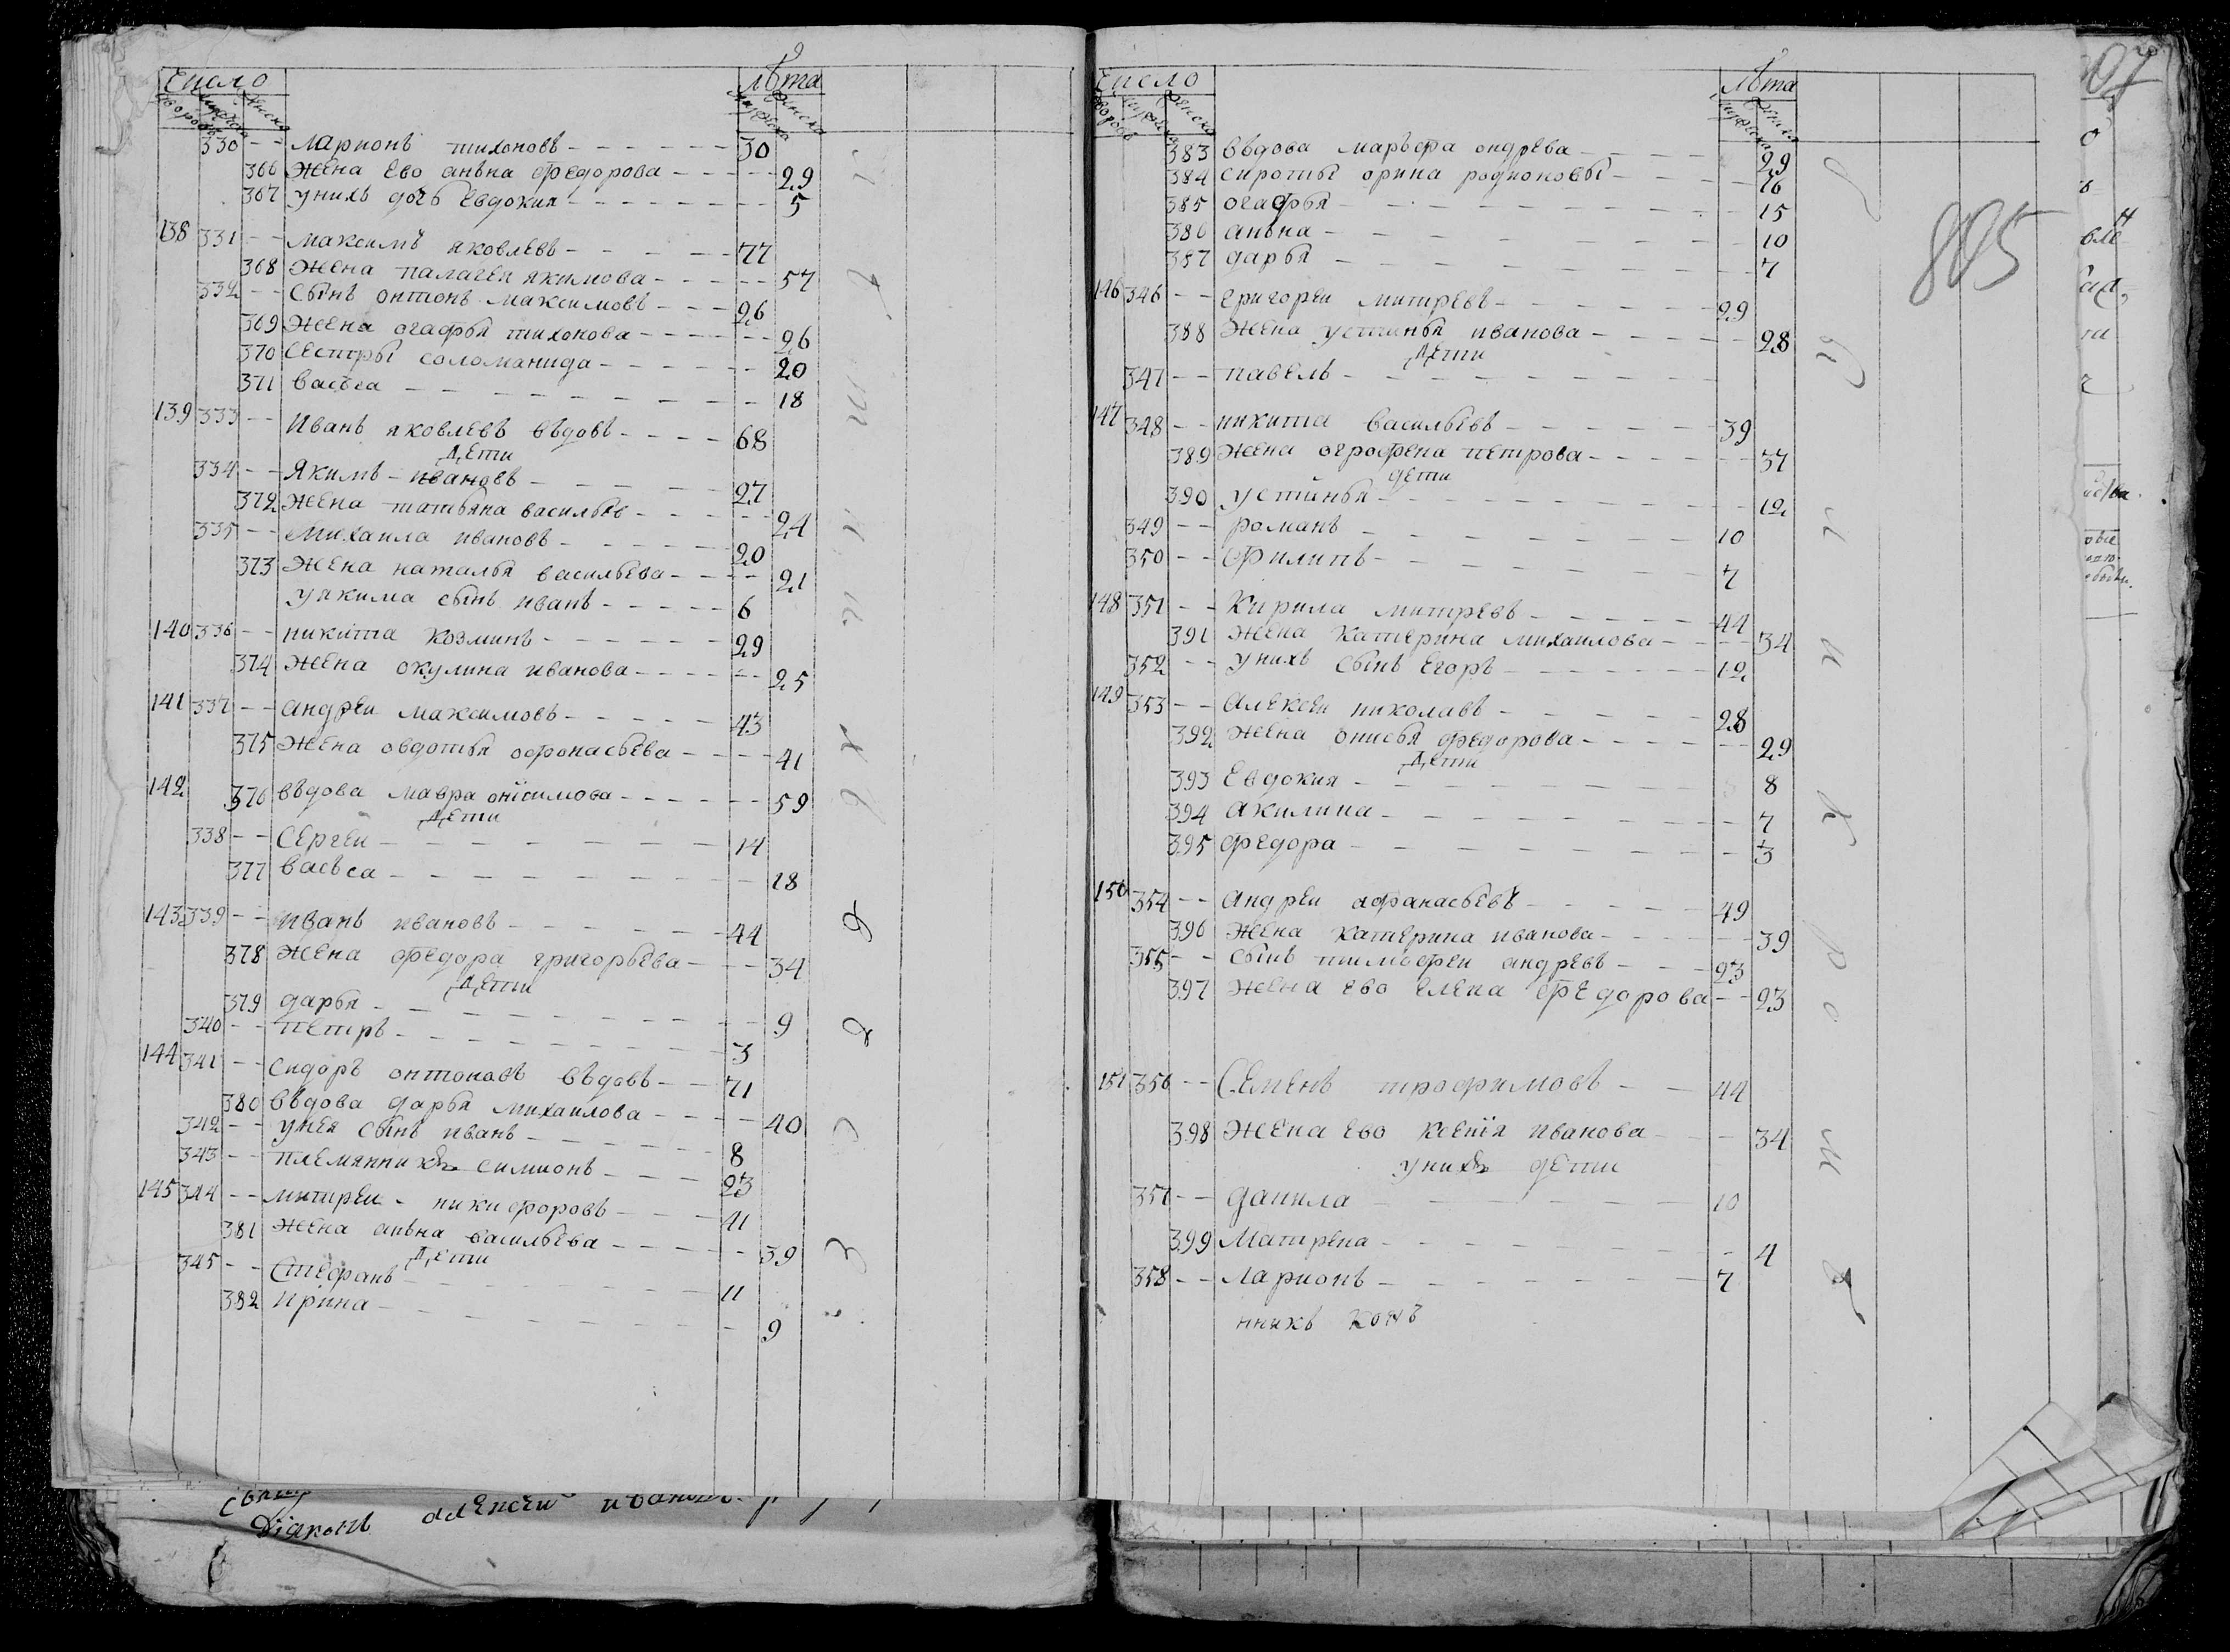 Число Лѣта
дворовъ мужеска женска мужеска женска
330 -- Ларионъ тихоновъ 30
366 Жена Ево анъна федорова 29
367 унихъ дочь Евдокия 5
138 331 -- Максимъ яковлевъ 77
368 Жена палагеи якимова 57
332 -- Сынъ онтонъ Максимовъ 26
369 Жена огафья тихонова 26
370 Сестры соломанида 20
371 Васъса 18
139 333 -- Иванъ яковлевъ въдовъ 68
Дети
334 -- Якимъ ивановъ 27
372 Жена татьяна васильев 24
335 -- Михаила ивановъ 20
373 Жена наталья васильева 21
у якима сынъ иванъ 6
140 336 -- никита козминъ 29
374 Жена окулина иванова 25
141 337 -- андреи максимовъ 43
375 Жена овдотья офонасьева 41
142 376 въдова мавра онїсимова 59
Дети
338 -- Сергеи 14
377 васъса 18
143 339 -- иванъ ивановъ 44
378 Жена федора григорьева 34
Дети
379 дарья 9
340 -- петръ 3
144 341 -- сидоръ онтоновъ въдовъ 71
380 въдова дарья михаилова 40
342 -- унея сынъ иванъ 8
343 -- племянникъ симионъ 23
145 344 -- митреи никифоровъ 41
381 Жена анъна васильева 39
Дети
345 -- Стефанъ 11
382 ирина 9
Диаконъ алексеи
Число Лѣта
дворовъ мужеска женска мужеска женска
383 въдова маръфа ондрева 29
384 сироты орина родионовы 16
385 огафья 15
386 анъна 10
387 дарья 7
146 346 -- григореи митревъ 29
388 Жена устинья иванова 28
Дети
347 -- павелъ
147 348 -- никита васильевъ 39
389 Жена огрофена петрова 37
дети
390 устинья 12
349 -- романъ 10
350 -- филипъ 7
148 351 -- Кирила митревъ 44
391 Жена катерина михаилова 34
352 -- унихъ сынъ Егоръ 12
149 353 -- алексеи николавъ 28
392 жена онисья федорова 29
Дети
393 Евдокия 8
394 акилина 7
395 федора 3
150 354 -- андреи афанасьевъ 49
396 Жена катерина иванова 39
355 -- сынъ тимофеи андревъ 23
397 жена ево елена федорова 23
151 356 -- Семенъ трофимовъ 44
398 Жена Ево ксенїя иванова 34
унихъ дети
357 -- данила 10
399 Матрена 4
358 -- Ларионъ 7
805